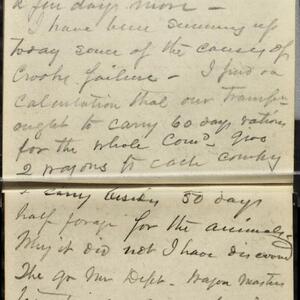 a few days more —
I have been summing up
today some of the causes of
Crooks failure — I find on
calculation that our transpn
ought to carry 60 days rations
for the whole Comd. Give
2 wagons to each company
& carry besides 50 days
half forage for the animals
Why it did not I have discovered
The Qr Mr Dept. Wagon Masters